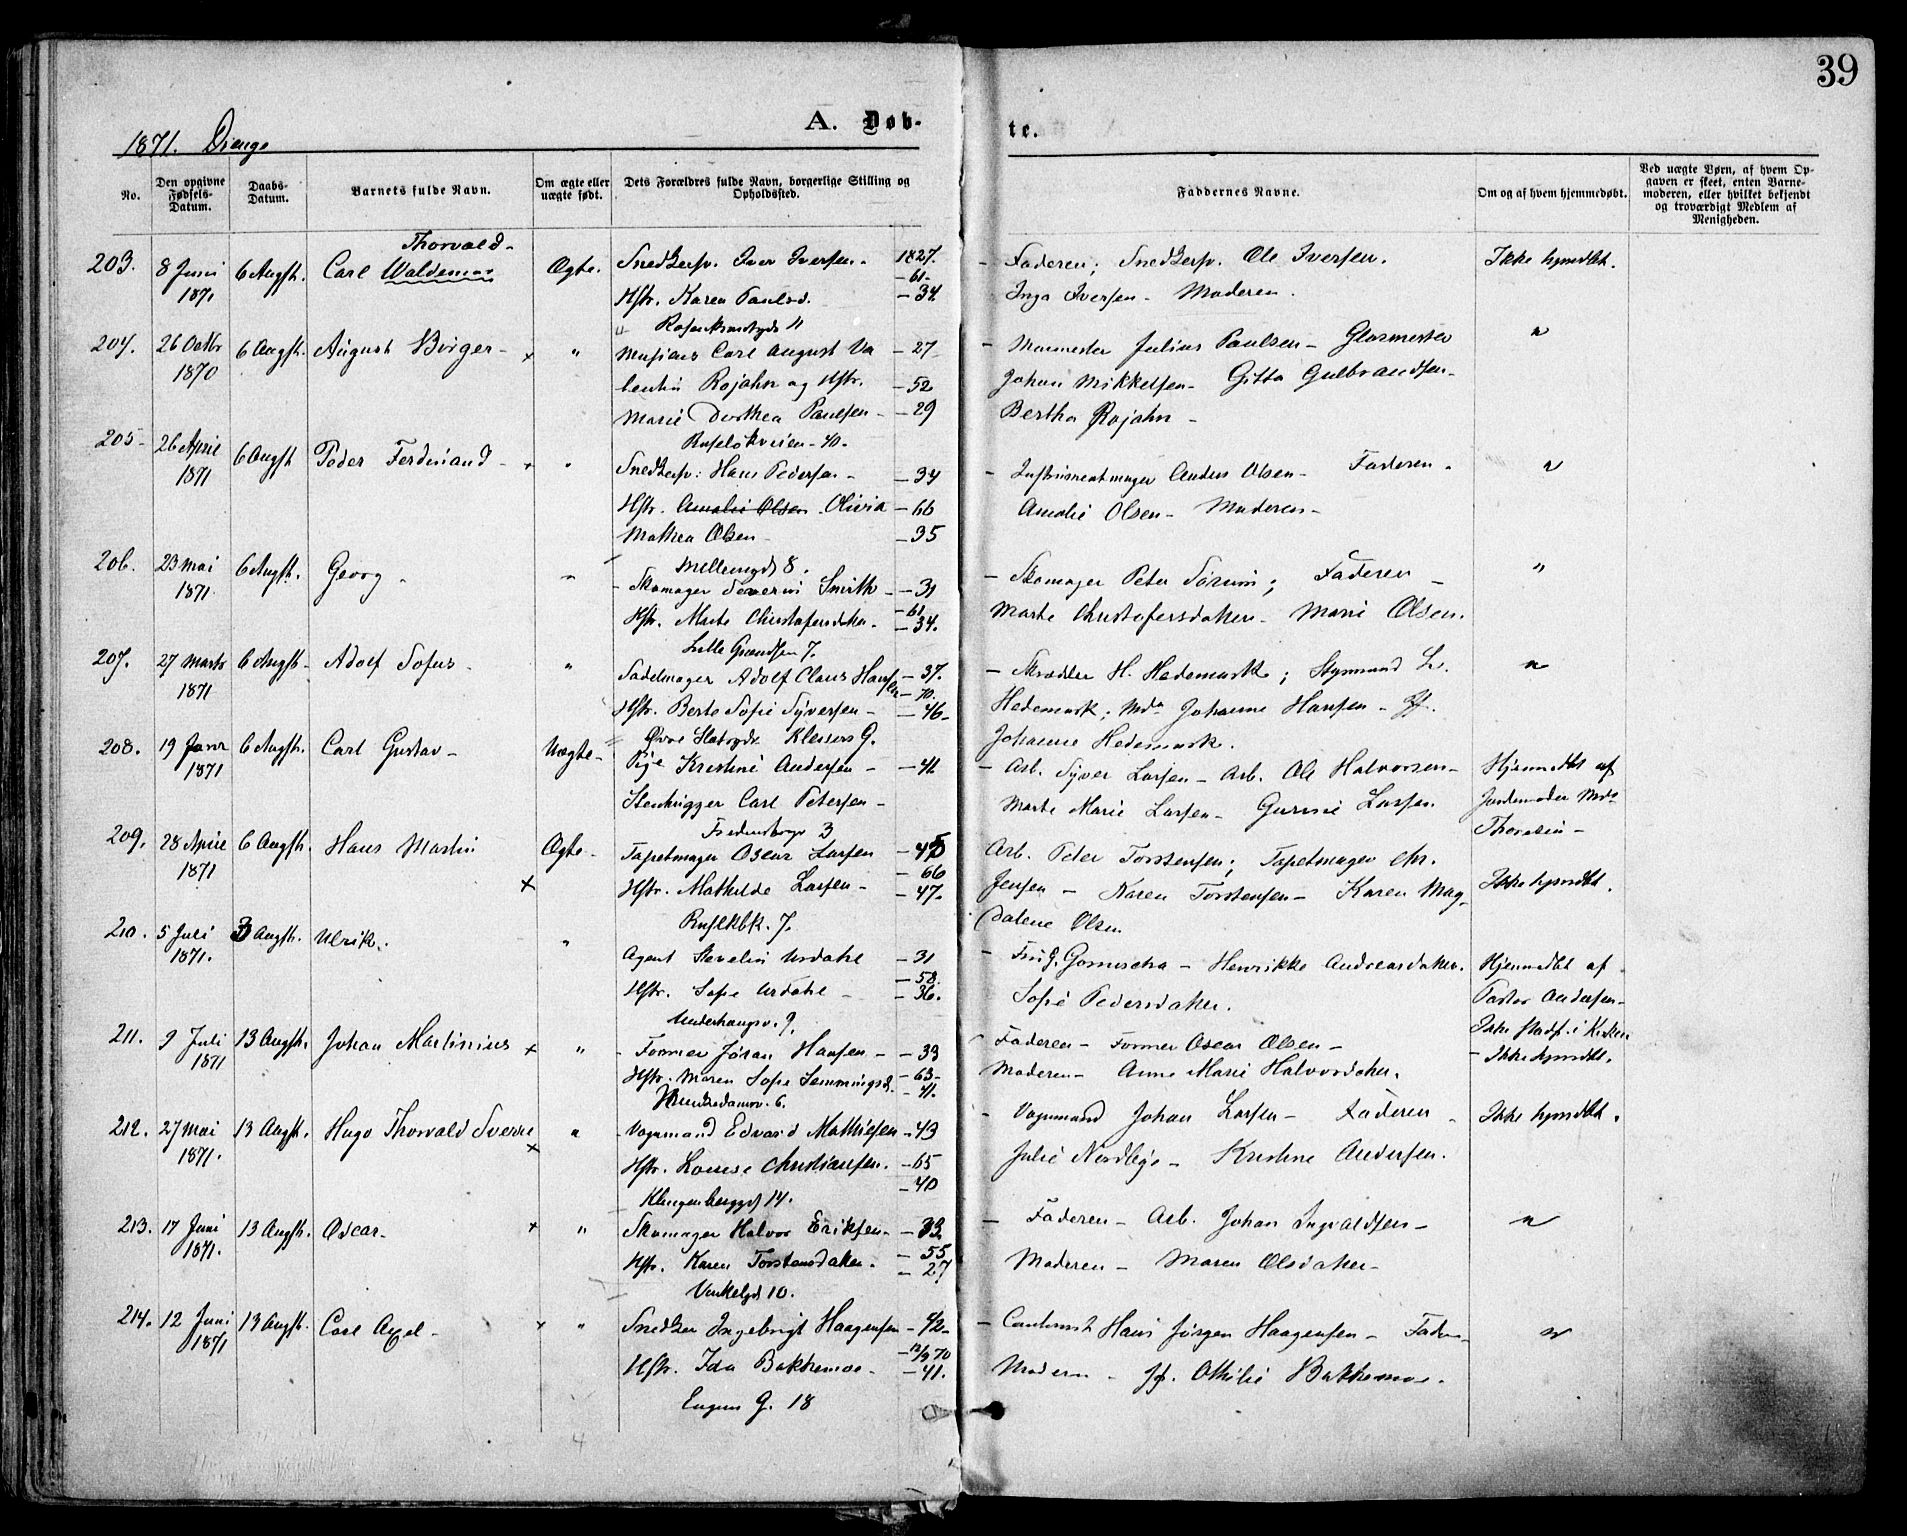 39
1871. Drenge
A. Døb-
te.
No.
Den opgivne Fødsels-Datum.
Daabs-Datum.
Barnets fulde Navn.
Om ægte eller uægte født.
Dets Forældres fulde Navn, borgerlige Stilling og Opholdssted.
Faddernes Navne.
Om og af hvem hjemmedøbt.
Ved uægte Børn, af hvem Op-
gaven er skeet, enten Barne-
moderen, eller hvilket bekjendt
og troværdigt Medlem af
Menigheden.
Thorvald
203. 8 Juni 6 Augst. Carl Waldemar Ægte. Snedkersv. Iver Iversen 1827. – Faderen; Snedkersv. Ole Iversen. Ikke hjmdbt.
1871 – 61
Hstr. Karen Paulsd. – 34. Inga Iversen – Moderen.
204. 26 Octbr 6 Augst. August Birger – x " Musicus Carl August Va – 27 – Murmester Julius Paulsen – Glasmester "
1870 lentin Rojahn og Hstr. – 52 Johan Mikkelsen – Gitta Gulbrandsen –
Marie Dorthea Paulsen – – 29 Bertha Rojahn –
Ruseløkveien 40.
205 26 April 6 Augst Peder Ferdinand – x " Snedkersv: Hans Pedersen – – 34 – Instrumentmager Anders Olsen – Faderen. "
1871 Hstr. Amalie Olsen Olivia – 66 Amalie Olsen – Moderen –
Mathea Olsen – – 35
Mellemgd 8.
206. 23 Mai 6 Augst. Georg " – Skomager Severin Smith – – 31 – Skomager Peter Sørum; Faderen – "
1871 – 61
Hstr. Marte Christofersdatter. – 34. Marte Christofersdatter – Marie Olsen.
Lille Grændsen 7.
207. 27 Marts 6 Augst – Adolf Sofus – " Sadelmager Adolf Claus Hansen – 37. – Skrædder H. Hedemark; Styrmand L. "
1871 – 70.
Hstr. Berte Sofie Syversen – – 46 – Hedemark; Mda Johanne Hansen – Jf.
Johanne Hedemark.
208. 19 Janr 6 Augst. Carl Gustav – Uægte – Pige Kristine Andersen – – 41. – Arb. Syver Larsen – Arb. Ole Halvorsen – Hjemmedbt af
1871 Stenhugger Carl Petersen – Marte Marie Larsen – Gurine Larsen Jordemoder Mda
Thoralin –
209. 28 April 6 Augst. Hans Martin Ægte. Tapetmager Oscar Larsen – 45 Arb. Peter Torstensen; Tapetmager Chr.
1871 – 66
x Hstr. Mathilde Larsen – – 47. Jensen – Karen Torstensen – Karen Mag- Ikke hjmdbt.
dalene Olsen
Rusløkbk. 7.
210. 5 Juli 3 Augst. Ulrik. " Agent Urdahl – 31 Henrikke Andreasdatter. Hjemmedbt af
1871. – 58.
Hstr. Sofie Urdahl – – 36. Sofie Pedersdatter. Pastor Andersen –
Ikke stadf. i Kirken
211. 9 Juli 13 Augst. Johan Martinius x " Former Jøran Hansen – – 33 – Faderen – Former Oscar Olsen – – Ikke hjmdbt.
1871 Hstr. Maren Sofie Semmingsd. – 63 – Moderen – Anne Marie Halvorsdatter.
– 41.
Munkedamsv. 6.
212. 27 Mai 13 Augst. Hugo Thorvald Sverre x " Vognmand Edvard Mathisen – 43 – Vognmand Johan Larsen – Faderen – Ikke hjmdbt.
1871. Hstr. Louise Christiansen. – 65 Julie Nordbye – Kristine Andersen.
– 40
Klingenberggd 14.
213. 17 Juni 13 Augst. Oscar – x " Skomager Halvor Eriksen – – 33 – Faderen – Arb. Johan Ingvaldsen – "
1871. – 55
Hstr. Karen Torstensdatter. – 27 Moderen – Maren Olsdatter –
Vinkelgd 10.
214. 12 Juni 13 Augst. Carl Axel – x " Snedker Ingebrigt Haagensen – 42 – – Hans Jørgen Haagensen – Faderen "
1871 – 12/9 70
Hstr. Ida Bakkemoe – – 41. Moderen – Jf. Othilie Bakkemoe.
Eugen G. 18